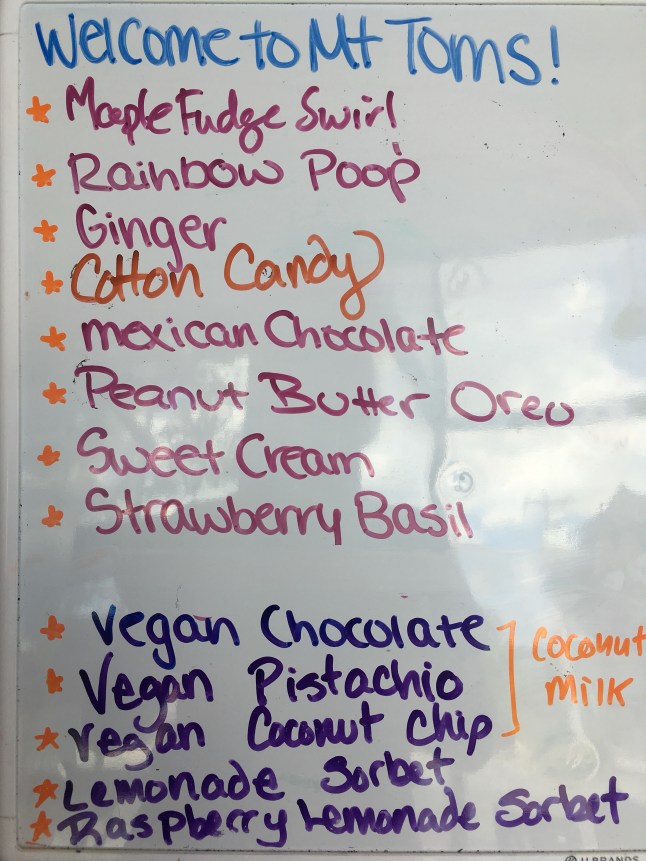 Welcome to Mt Toms!
* Maple Fudge Swirl
* Rainbow Poop
* Ginger
* Cotton Candy
* Mexican Chocolate
* Peanut Butter Oreo
* Sweet Cream
* Strawberry Basil
* Vegan Chocolate
* Vegan Pistachio
* Vegan Coconut Chip
Coconut
Milk
* Lemonade Sorbet
* Raspberry Lemonade Sorbet
U BRANDS